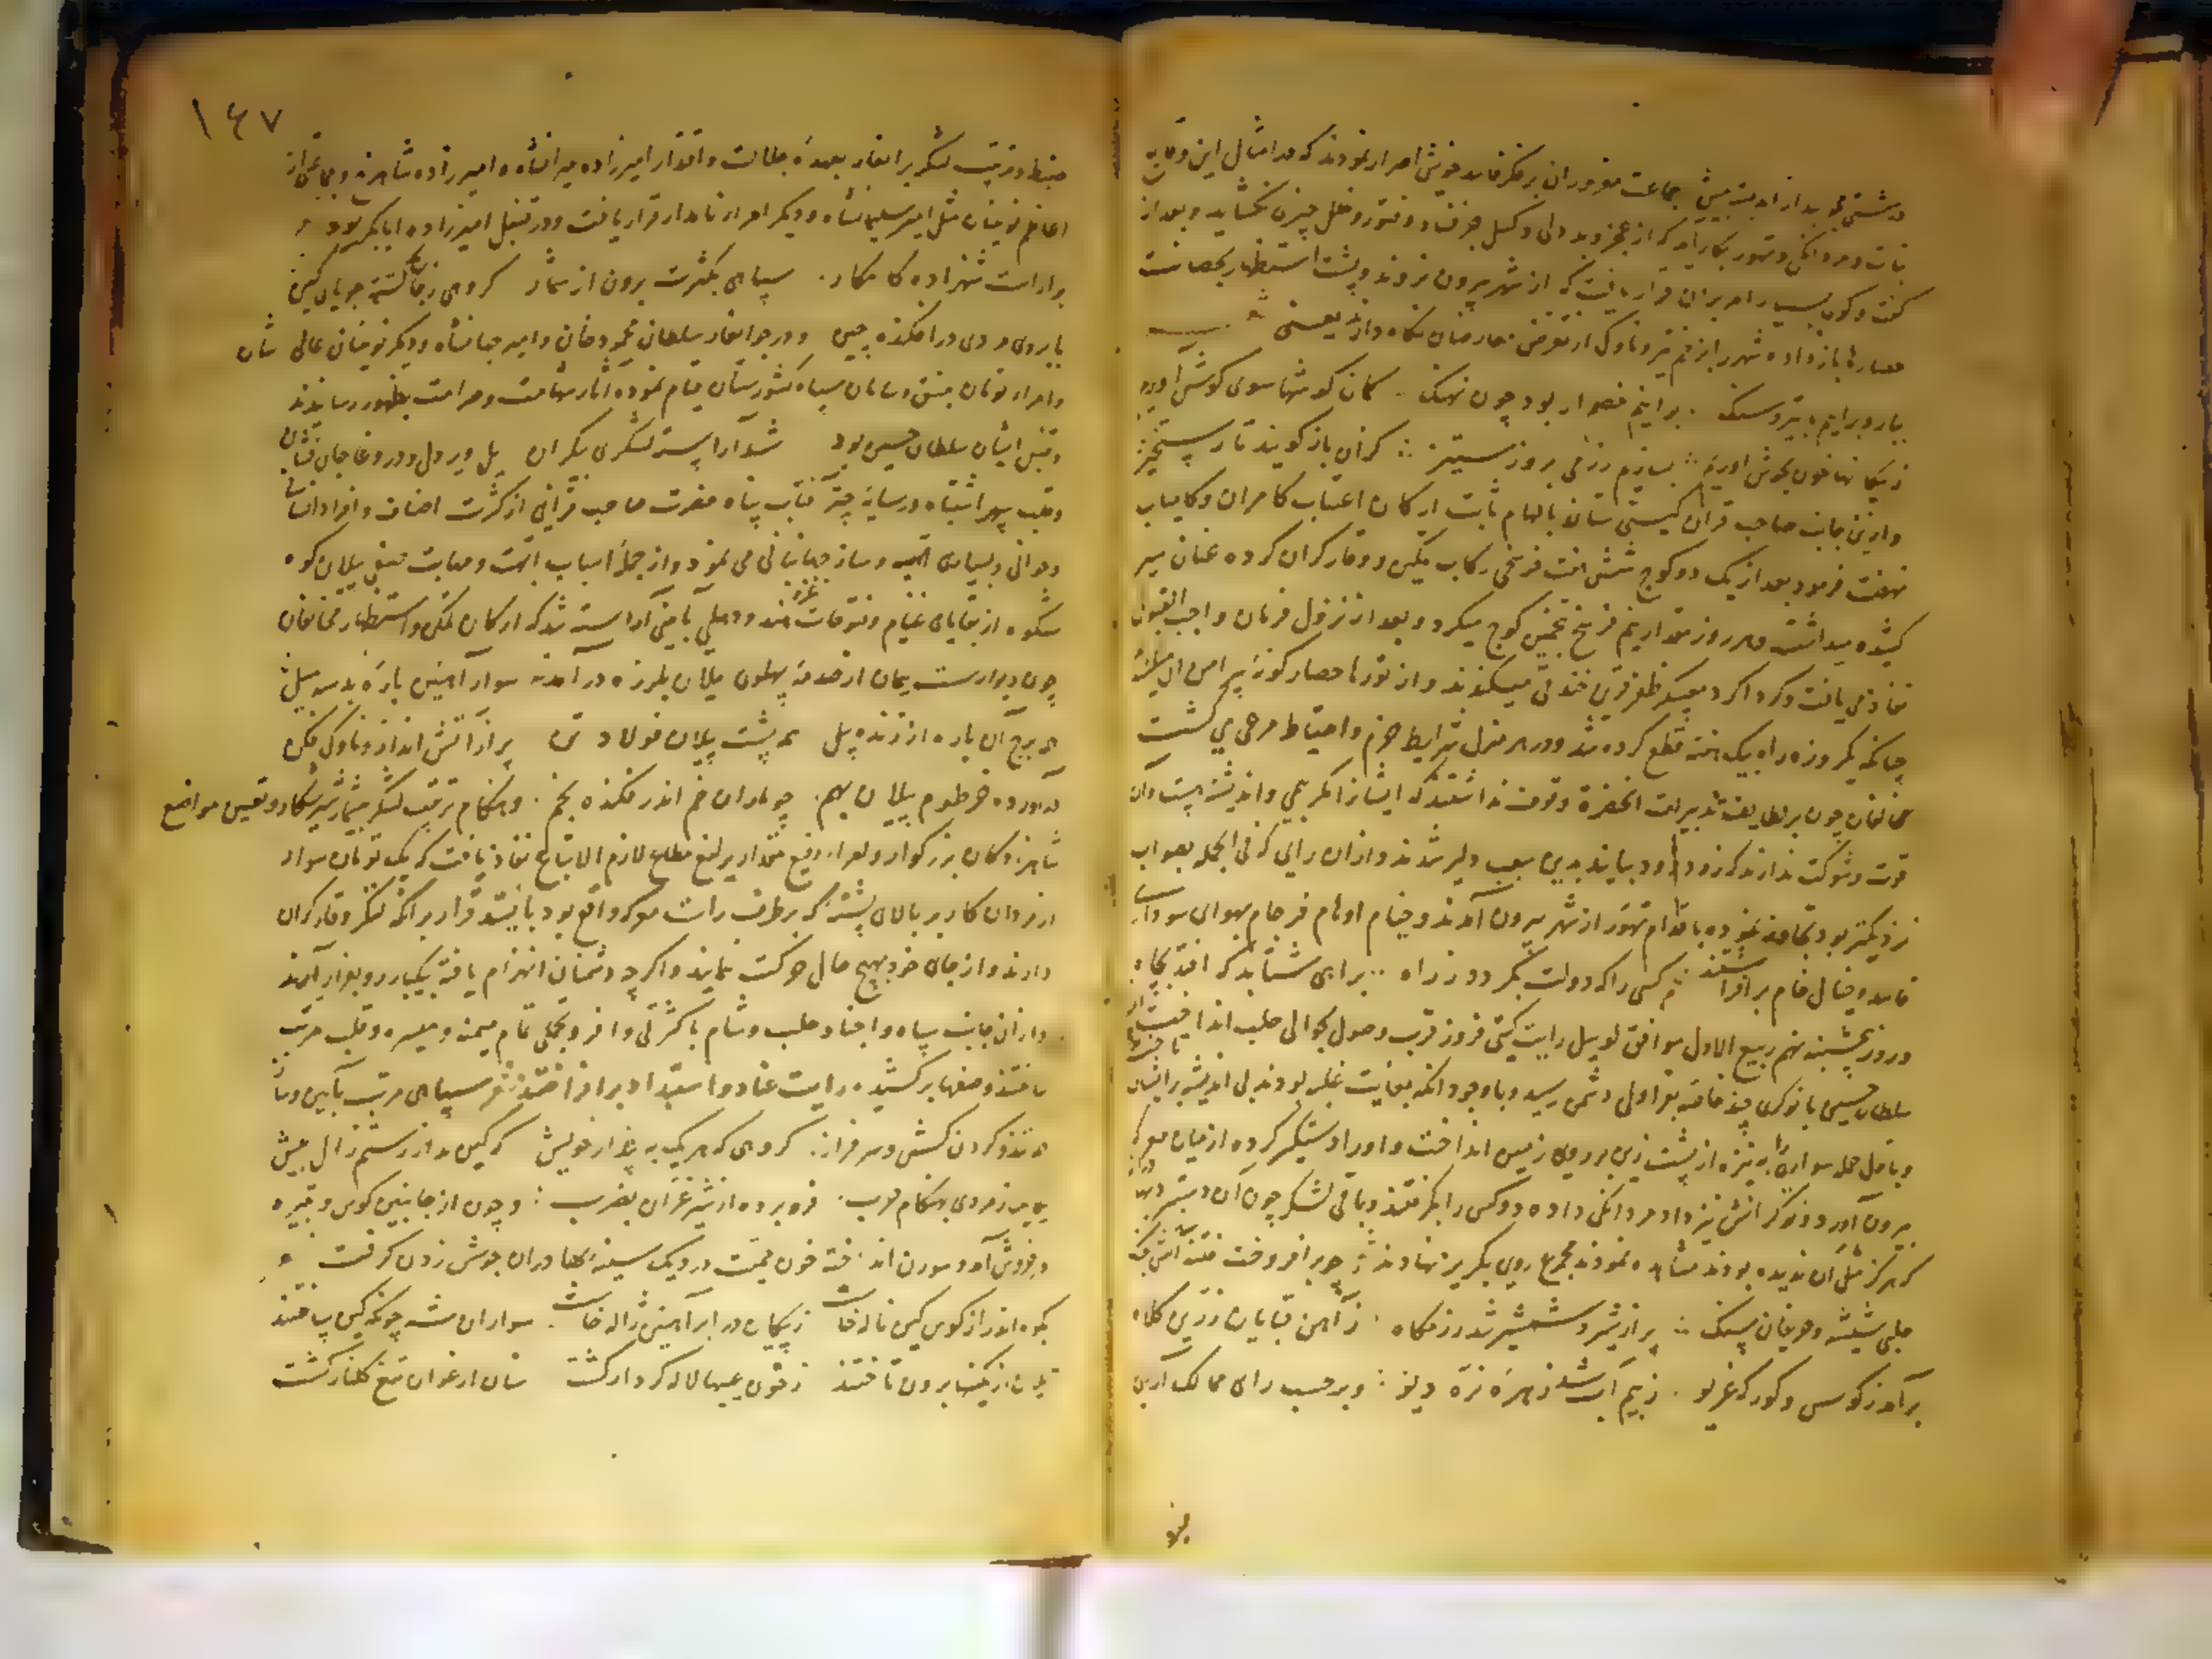 درشتی بجد از اندیشه پیش جماعت مغروران بر فکر فاسد خویش اصرار نمودند که در امثال این وقایع
ثبات و مردانگی و تهور بکار آید که از عجز و بددلی و کسل جز فساد و فتور و خلل چیزی نگشاید و بعد از
گفت و گوی بسیار امر بران قرار یافت که از شهر بیرون نروند و پشت استظهار بحصانت
حصار باز داده شهر را بزخم تیر و ناوک از تعرض معارضان نگاه دارند یعنی
بباروبر آییم با تیر و سنگ برانیم خصم ار بود چون نهنگ کمان گوشها سوی گوش آوریم
ز پیکانها خون بجوش آوریم بسازیم رزمی بروز ستیز کزان باز گویند تا رستخیز
و ازین جانب صاحب قران گیتی ستان بالهام ثابت ارکان اعتاب کامران و کامیاب
نهضت فرمود بعد از یک دو کوچ شش هفت فرسخی رکاب تمکین و وقار گران کرده عنان سیر
کشیده میداشت و هر روز مقدار نیم فرسخ بتخمین کوچ میکرد و بعد از نزول فرمان واجب القبول
نفاذ می یافت و گرداگرد معسکر ظفرقرین خندقی میکندند و از تورها حصار گونه پیرامن آن
چنانکه یکروزه راه بیک هفته قطع کرده شد و در هر منزل شرایط حزم و احتیاط مرعی می گشت
مخالفان چون بر لطایف تدبیرات انحضرة وقوف نداشتند که ایشانرا مگر بیمی و اندیشه هست و آن
قوت و شوکت ندارند که زود زود بیایند بدین سبب دلیر شدند و ازان رایی که فی الجمله بصواب
نزدیکتر بود تجاوز نموده باقدام تهور از شهر بیرون آمدند و خیام اوهام فرجام بهوای سودای
فاسد و خیال خام برافراشتند کسی را که دولت بگردد ز راه براهی شتابد که افتد بچاه
و روز پنجشنبه نهم ربیع الاول موافق لوییل رایت گیتی فروز قرب وصول بحوالی حلب انداخت
سلطان حسین با نوکری چند خاصه بقراولی دشمن رسید و با وجود انکه بغایت غلبه بودند بی اندیشه بر ایشان تاخت
و باول حمله سواری را به نیزه از پشت زین بر روی زمین انداخت و او را دستگیر کرده از میان معرکه
بیرون آورد و نوکرانش نیز داد مردانگی داده دو کس را بگرفتند و باقی لشکر چون آن دستبرد
که هرگز مثل آن ندیده بودند مشاهده نمودند مجموع روی بگریز نهادند چو برافروخت فتنه آتش جنگ
حلبی شیشه و حریفان سنگ پر از شیر و شمشیر شد رزمگاه ز آهن قبایان زرین کلاه
برآمد ز کوس و گورگه غریو ز بیم آب شد زهره نره دیو و بر حسب رای ممالک آرای
۱۴۷
ضبط و ترتیب لشکر برانغار بعهده جلالت و اقتدار امیرزاده میرانشاه و امیرزاده شاهرخ و جماعتی از
اعاظم نوینان مثل امیر سلیمانشاه و دیگر امراء نامدار قرار یافت و در قنبل امیرزاده ابابکر بود
بیاراست شهزاده کامکار سپاهی بکثرت برون از شمار گروهی ز جان گشته جویای کین
بابروی مردی درافکنده چین و در جوانغار سلطان محمود خان و امیر جهانشاه و دیگر نوینان عالی شان
و امراء تومان بضبط و سامان سپاه کشورستان قیام نموده آثار شهامت و صرامت بظهور رسانیدند
و قنبل ایشان سلطان حسین بود شد آراسته لشکری بیکران یل و پردل و در وغا جان فشان
و قلب سپهر اشتباه در سایه چتر آفتاب پناه حضرت صاحب قرانی از کثرت اصناف و افراد انسانی
و حیوانی و بسیاری اهبه و ساز جهانبانی می نمود و از جمله اسباب ابهت و مهابت صفی پیلان کوه
شکوه از بقایای غنایم و فتوحات غزو هند و دهلی بآیینی آراسته شد که ارکان تمکین و استظهار مخالفان
چون دیوار سست بنیان از صدمه پهلوی پیلان بلرزه درآمد سوار آهنین باره بد سه میل
همه برج آن باره از زنده پیل همه پشت پیلان فولاد تن پر از آتش انداز و ناوک فکن
درآورده خرطوم پیلان بهم چو ماران خم اندر فکنده بخم و هنگام ترتیب لشکر بیشمار شیر شکار و تعیین مواضع
شاهزادگان بزرگوار و امراء رفیع مقدار یرلیغ مطاع لازم الاتباع نفاذ یافت که یک تومان سوار
از مردان کار بر بالای پشته که بر طرف راست معرکه واقع بود بایستد قرار برانکه لنگر وقار گران
دارند و از جای خود بهیچ حال حرکت ننمایند و اگرچه دشمنان انهزام یافته بیکبار رو بفرار آرند
و ازان جانب سپاه و اجناد حلب و شام با کثرتی وافر و تجملی تمام میمنه و میسره و قلب مرتب
ساختند و صفها برکشیده رایت عناد و استبداد برافراختند شعر سپاهی مرتب بآیین و ساز
همه تند و گردن کش و سرفراز گروهی که هریک به پندار خویش که کین مداز رستم زال بیش
بهنگام حرب فرو برده از شیر غران بضرب و چون از جانبین کوس و نقیره
درخروش آمد و سورن انداخته خون حمیت در دیک سینه بهادران جوش زدن گرفت
بکوه اندر از کوس کین ناله خاست ز پیکان در ابر آهنین ژاله خاست سواران مست چونکه کین یافتند
یلان از کمینها برون تاختند ز خون عیبها لاله کردار گشت سنان ارغوان تیغ گلنار گشت